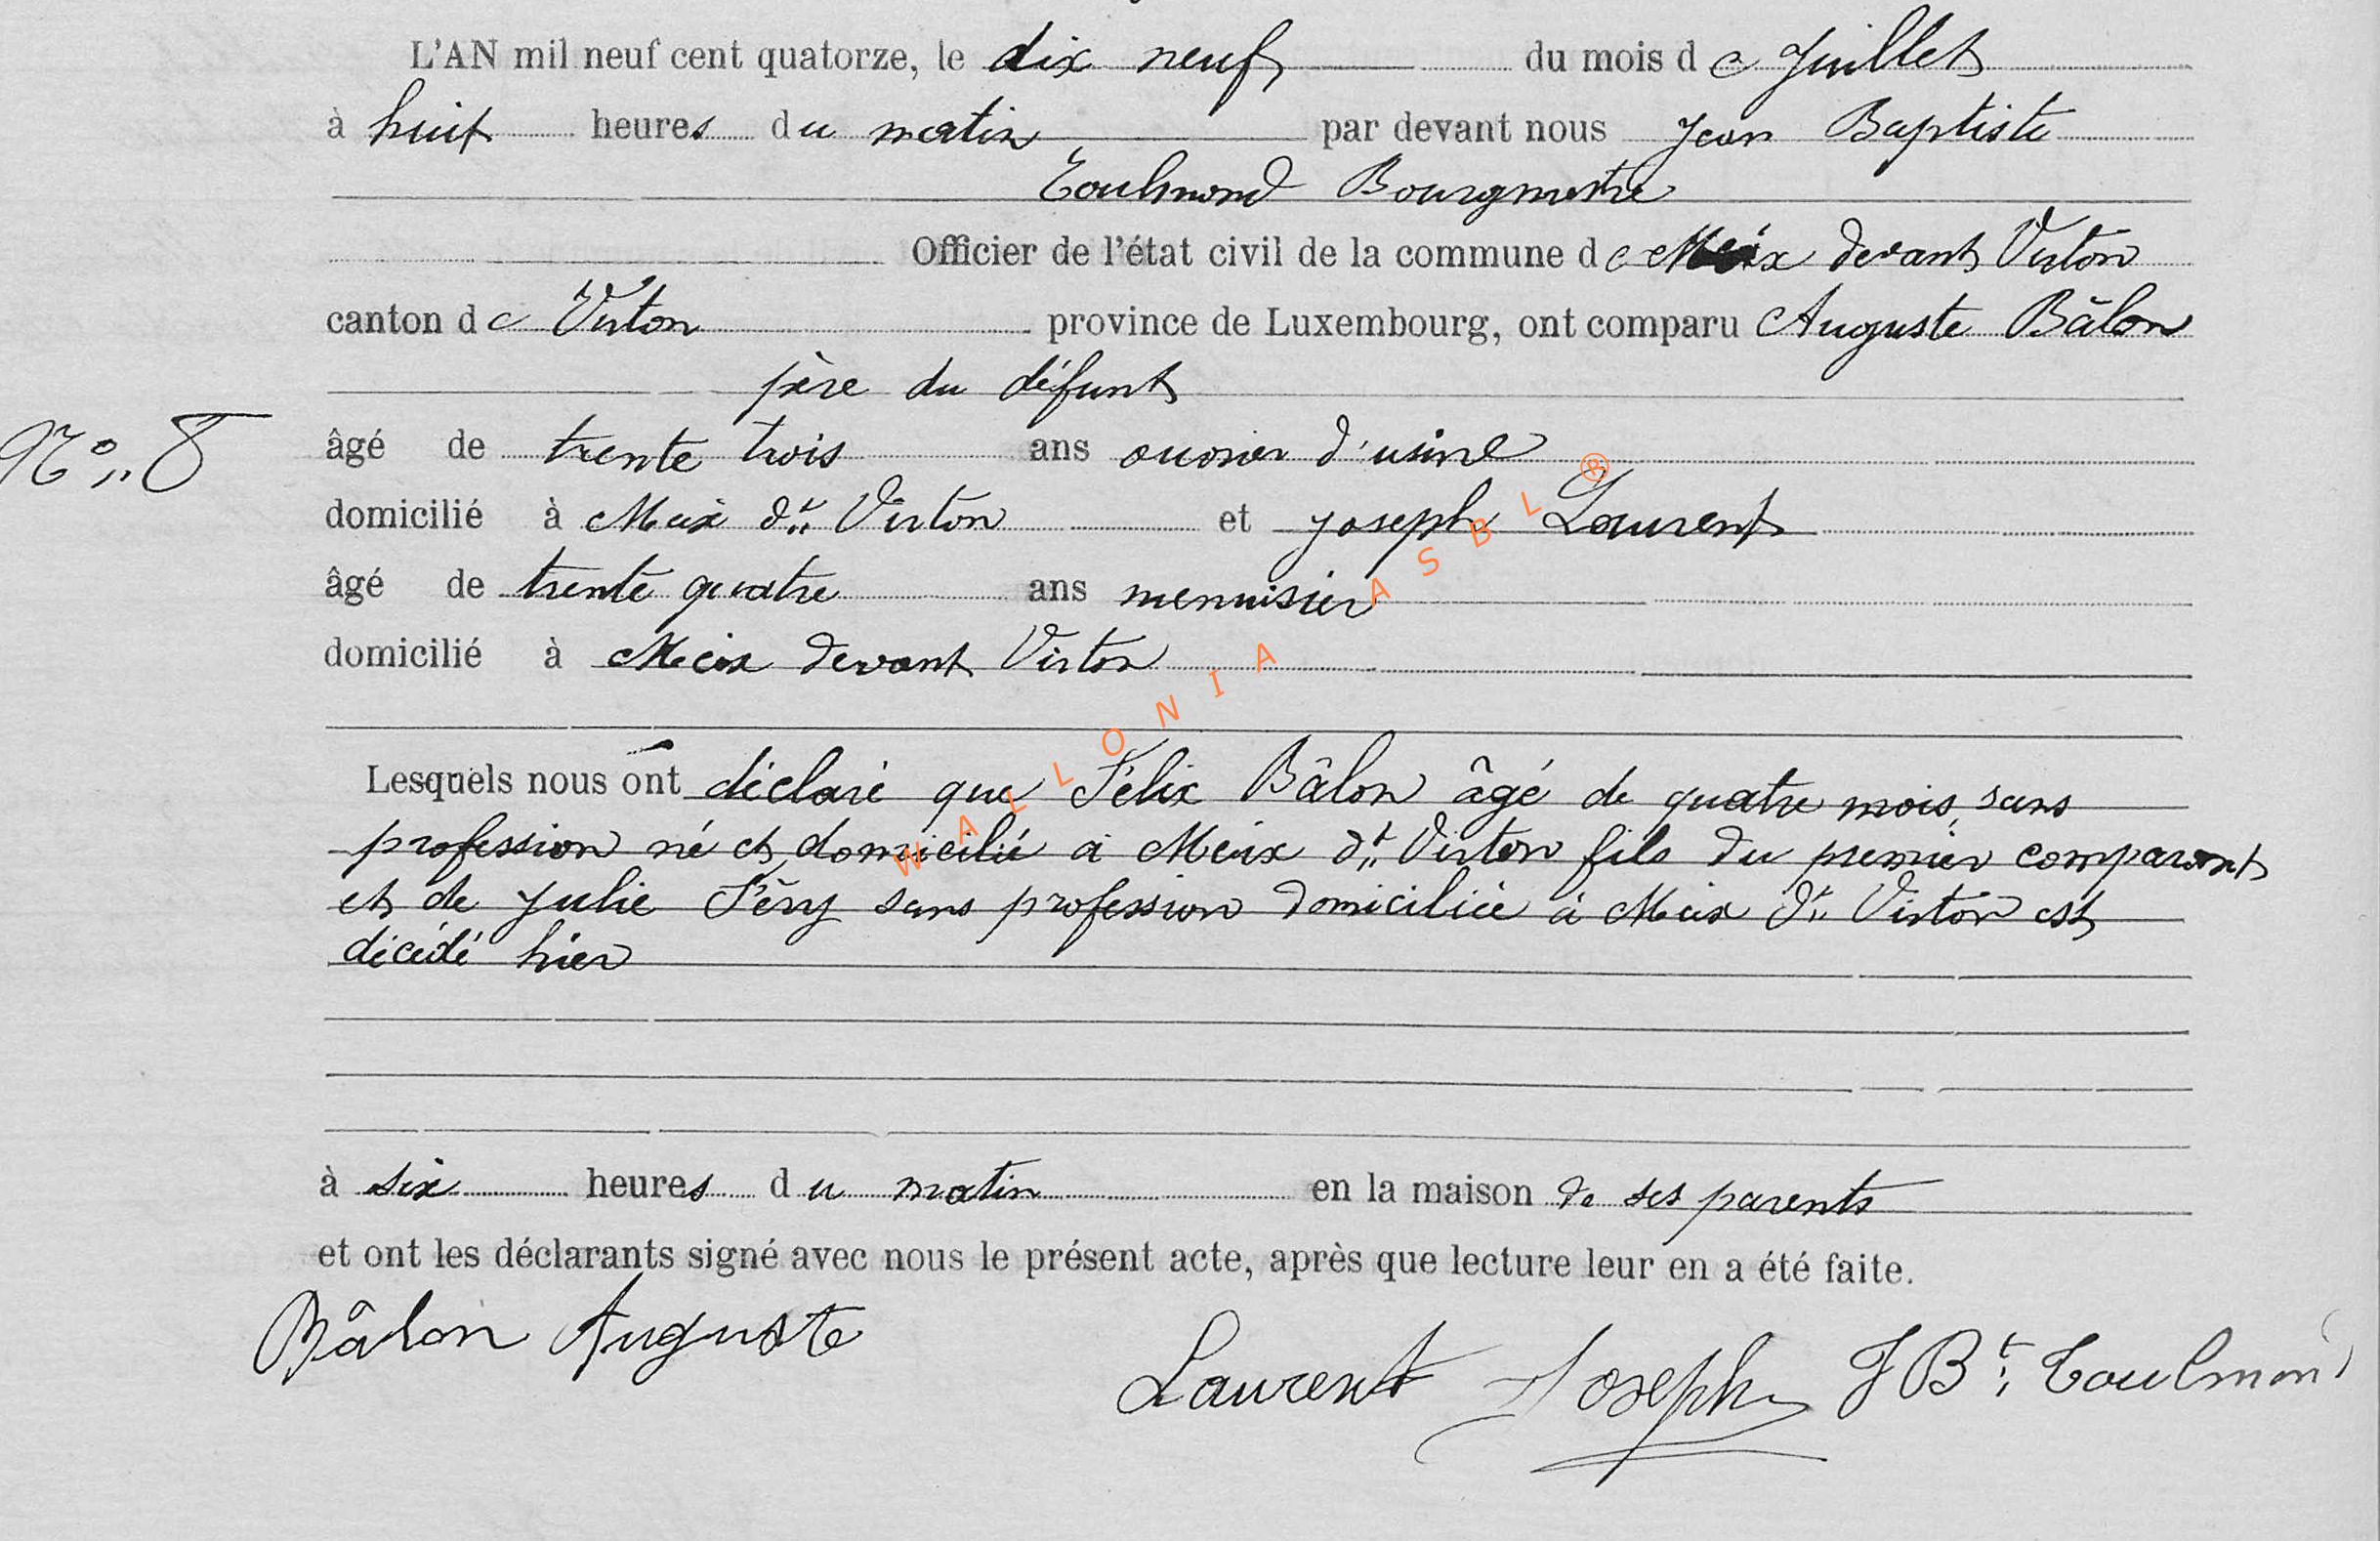 L'AN mil neuf cent quatorze, le dix neuf du mois de Juillet
à huit heures du matin par devant nous Jean Baptiste
Toulmond Bourgmestre
Officier de l'état civil de la commune de Meix devant Virton
canton de Virton province de Luxembourg, ont comparu Auguste Bâlon
père du défunt
N° 8
âgé de trente trois ans ouvrier d'usine
domicilié à Meix dt Virton et Joseph Laurent
âgé de trente quatre ans menuisier
domicilié à Meix devant Virton
Lesquels nous ont déclaré que Félix Bâlon âgé de quatre mois, sans
profession né et domicilié à Meix dt Virton fils du premier comparant
et de Julie Féry sans profession domiciliée à Meix dt Virton est
décédé hier
à six heures du matin en la maison de ses parents
et ont les déclarants signé avec nous le présent acte, après que lecture leur en a été faite.
Bâlon Auguste
Laurent Joseph JBt Toulmond
WALLONIA ASBL ®